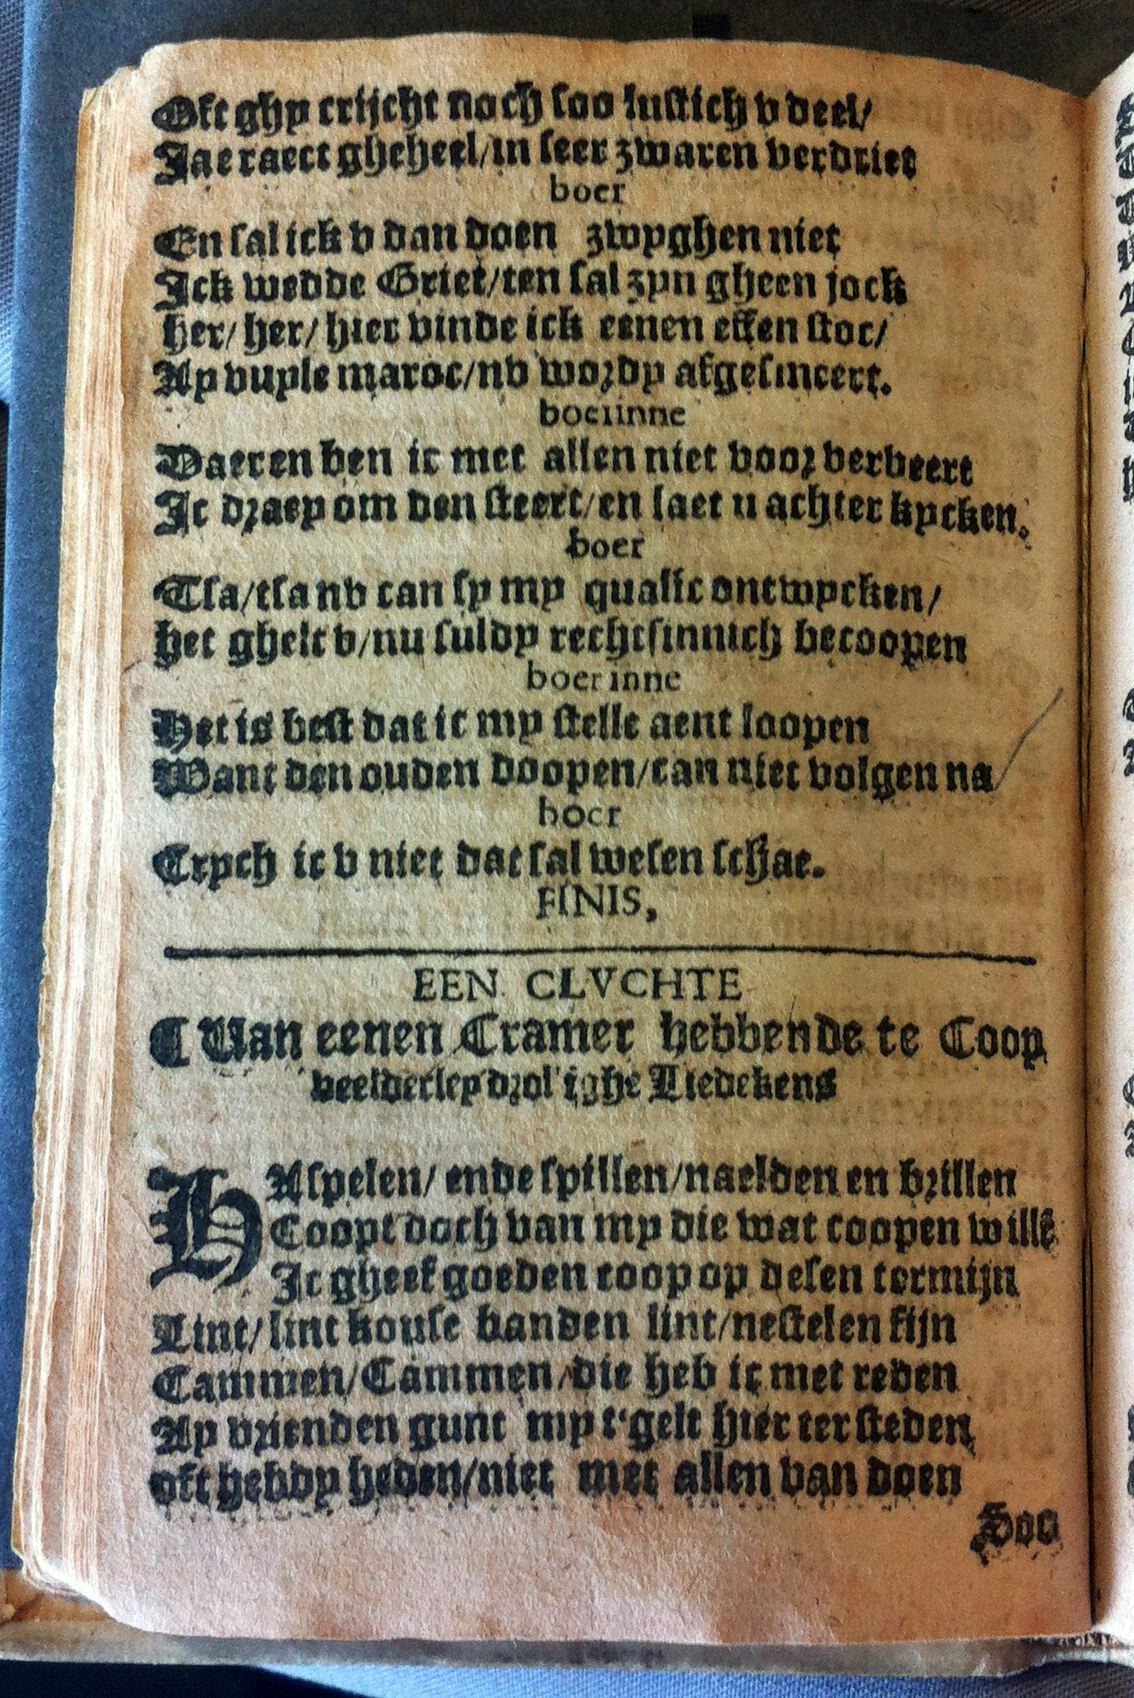 Oft ghy crijcht noch soo lustich v deel/
Jae raect gheheel/in seer zwaren verdriet
boer
En sal ick v dan doen zwyghen niet
Ick wedde Griet/ten sal zyn gheen jock
her/ her/ hier vinde ick eenen effen stoc/
Ay vuyle maroc/nv wordy afgesmeert.
boerinne
Daer en ben ic met allen niet voor verveert
Ic draey om den steert/en laet u achter kycken.
boer
Tsa/tsa nv can sy my qualic ontwycken/
het ghelt v/nu suldy rechtsinnich becoopen
boerinne
Het is best dat ic my stelle aent loopen
Want den ouden doopen/can niet volgen na
boer
Crych ic v niet dat sal wesen schae.
FINIS,
EEN CLVCHTE
¶ Van eenen Cramer hebbende te Coop
veelderley drol'ighe Liedekens
HAspelen/ ende spillen/naelden en brillen
Coopt doch van my die wat coopen willē
Ic gheef goeden coop op desen termijn
Lint/ lint kouse banden lint/nestelen fijn
Cammen/Cammen/die heb ic met reden
Ay vrienden gunt my t'gelt hier ter steden
oft hebdy heden/niet met allen van doen
Soo